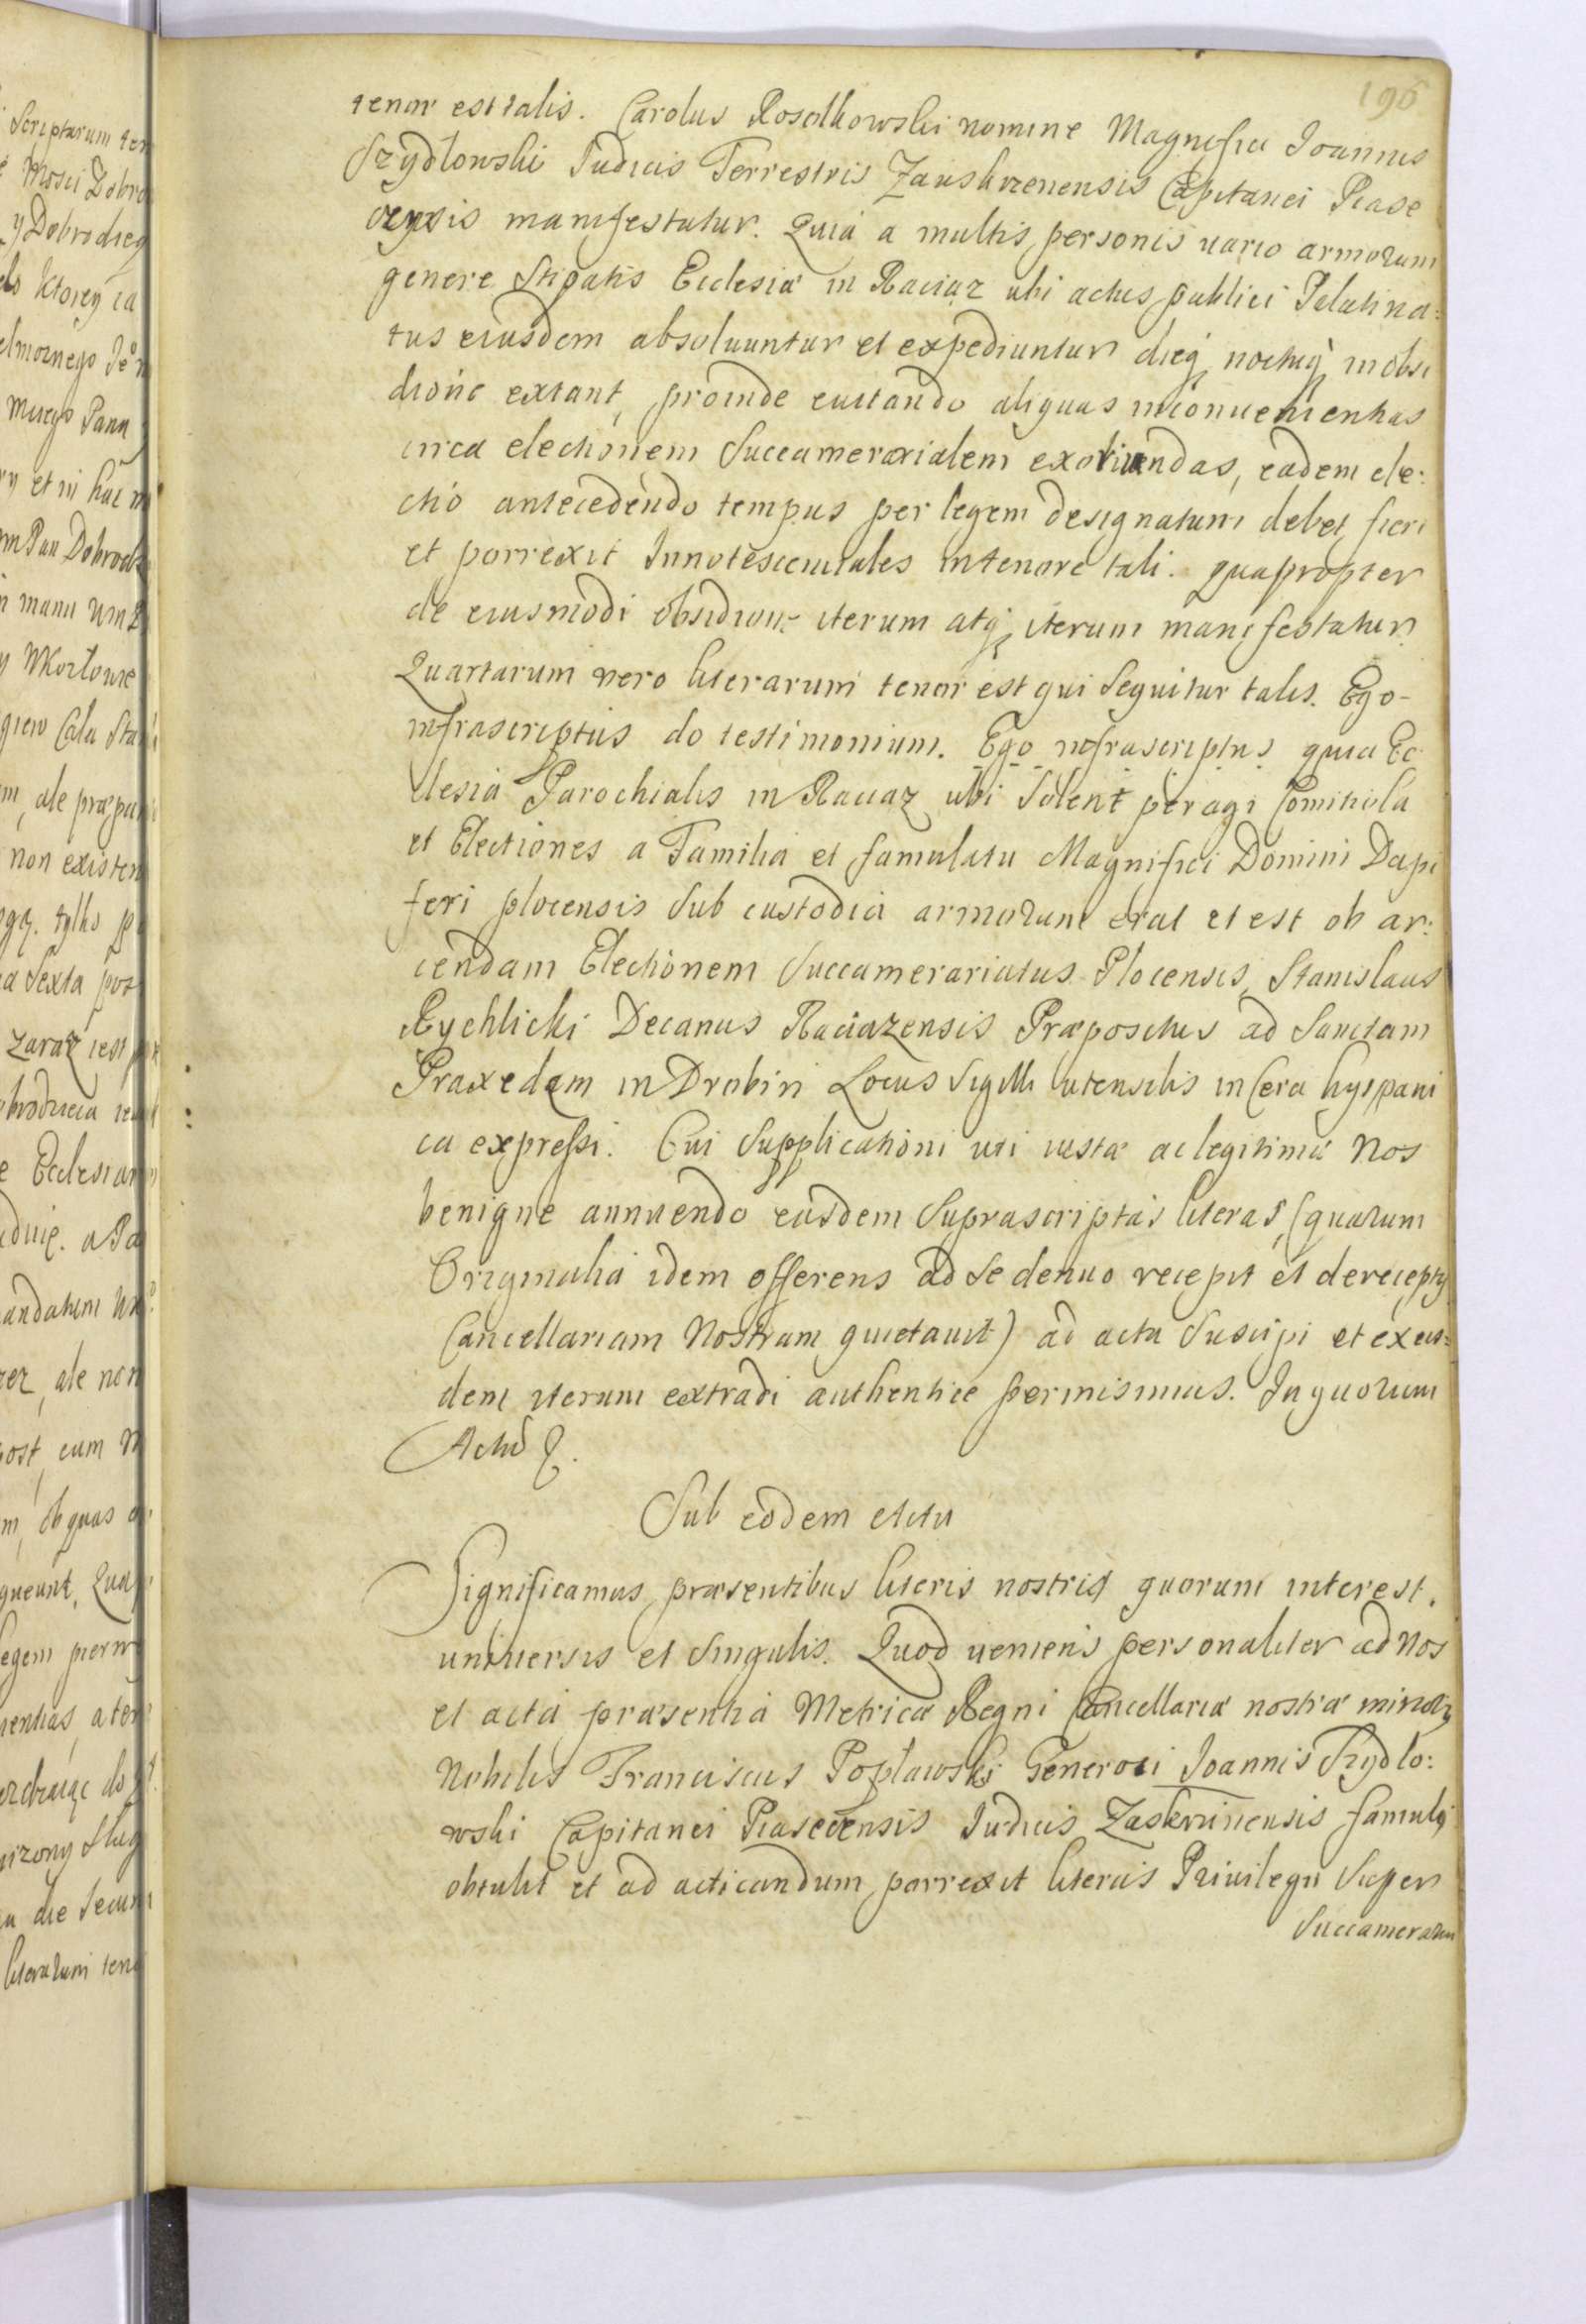 196
tenor est talis. Carolus Rosolkowski nomine Magnifici Joannis
Szydlowski Judicis Terrestris Zauskrzenensis Capitanei Piase
censis manifestatur. Quia a multis personis uario armorum
genere stipatis Ecclesiæ in Raciąz ubi actus publici Palatina:
tus eiusdem absoluuntur et expediuntur dieq; noctuq; in obsi
dione extant, proinde euitando aliquas inconuenientias
circa electionem Succamerarialem exoriundas, eadem ele:
ctio antecedendo tempus per legem designatum debet fieri
et porrexit Innotescentiales in tenore tali. quapropter
de eiusmodi obsidione iterum atq; iterum manifestatur.
Quartarum uero literarum tenor est qui sequitur talis. Ego
infrascriptus do testimonium. Ego infrascriptus quia Ec
clesia Parochialis in Raciaz ubi solent peragi Comitiola
et Electiones a Familia et famulatu Magnifici Domini Dapi
feri plocensis sub custodia armorum erat et est ob ar:
cendam Electionem Succamerariatus Plocensis, Stanislaus
Rychlicki Decanus Raciazensis Præpositus ad Sanctam
Praxedem in Drobin Locus Sigilli utensilis in Cera hyspani
ca expressi. Cui Supplicationi uti iustæ ac legitimæ Nos
benigne annuendo easdem Suprascriptas literas, (quarum
Originalia idem offerens ad se denuo recepit et de receptis
Cancellariam Nostram quietauit) ad acta Suscipi et ex eis=
dem iterum extradi authentice permisimus. In quorum
Actũ
Sub eodem Actu
Significamus præsentibus literis nostris quorum interest.
uniuersis et singulis. Quod ueniens personaliter ad Nos
et acta præsentia Metricæ Regni Cancellariæ nostræ minoris
Nobilis Franciscus Poplawski Generosi Joannis Szydlo:
wski Capitanei Piasecensis Judicis Zaskrzinensis famulus
obtulit et ad acticandum porrexit literas Priuilegii Super
Succamerarium